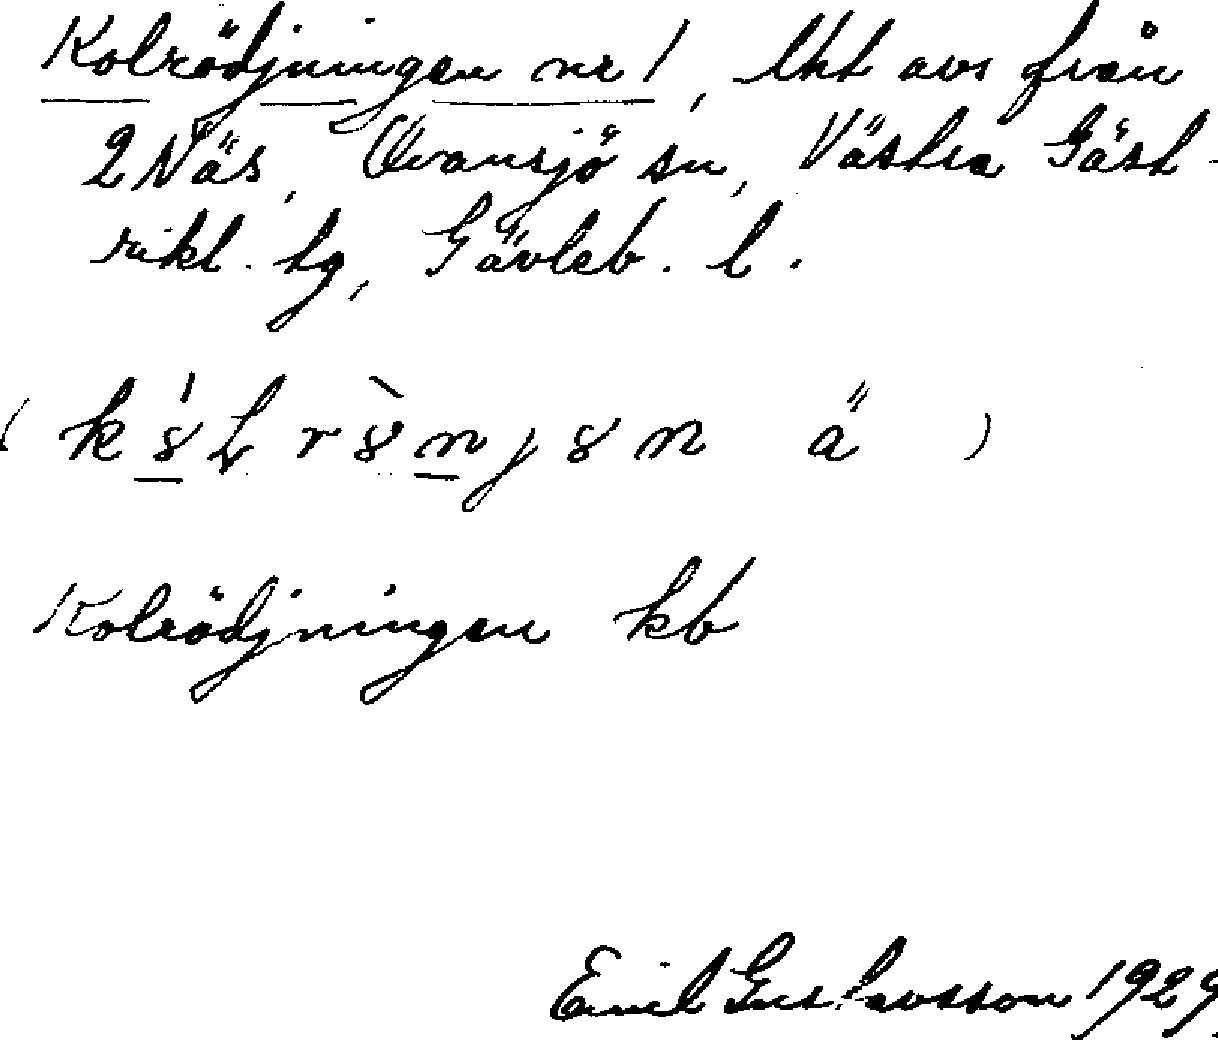 Kolrödjningen nr 1, lht avs från
2 Näs, Ovansjö sn, Västra Gäst-
rikl. tg, Gävleb. l.
Kolrödjningen kb
Emil Gustavsson 1929